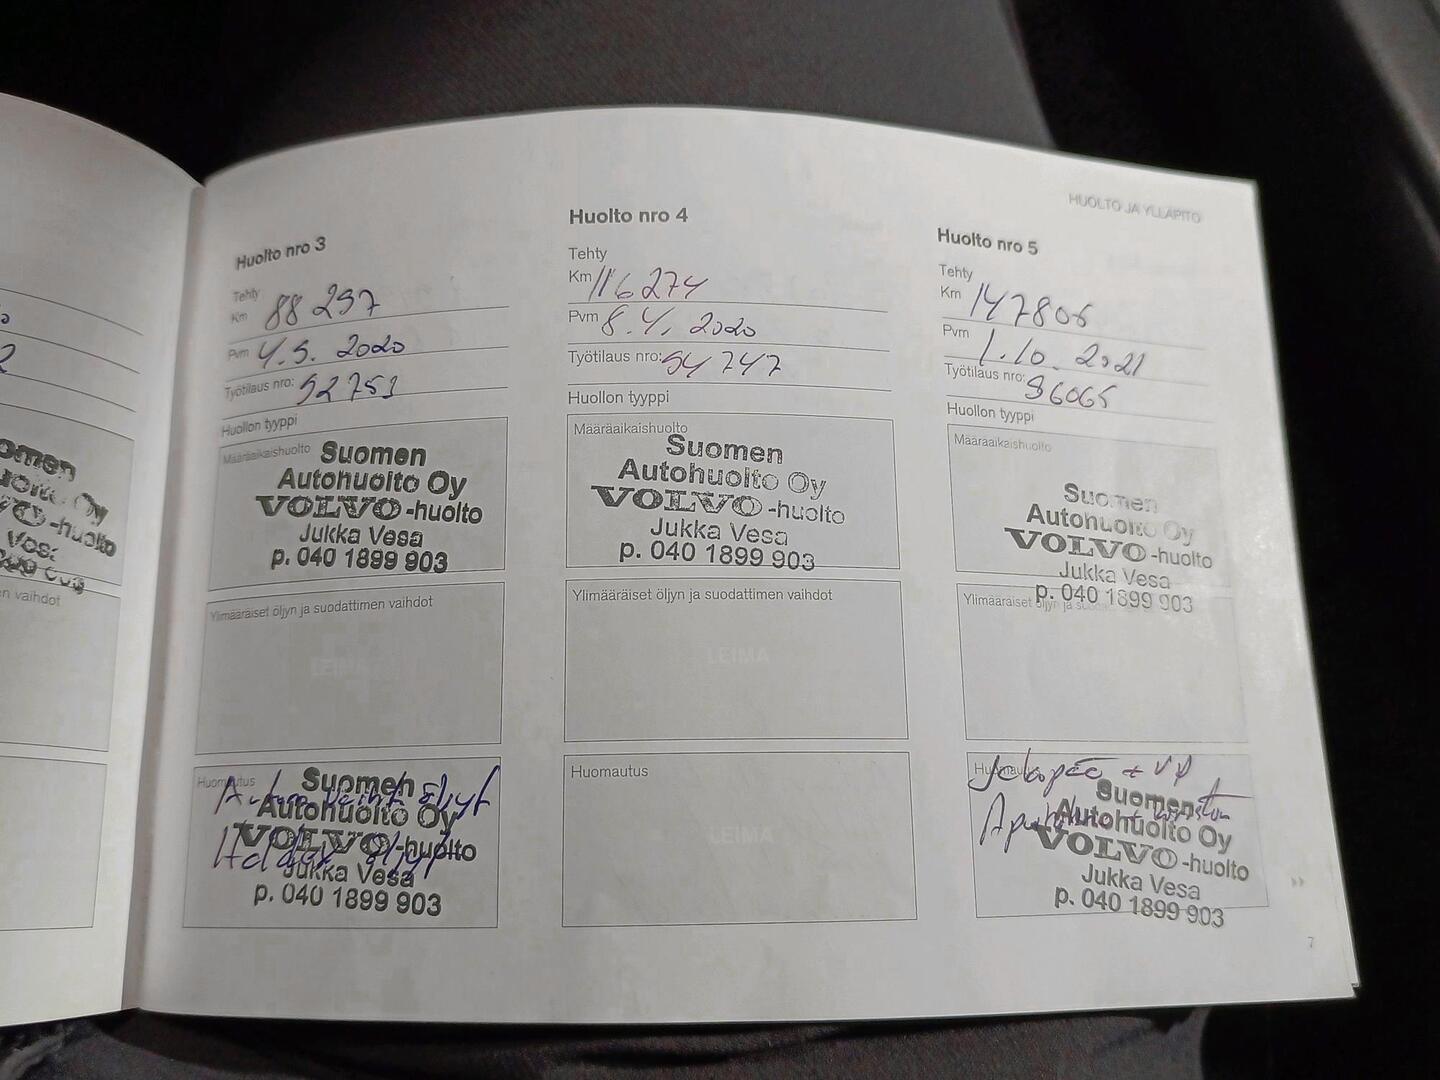 HUOLTO JA YLLÄPITO
Huolto nro 3
Tehty
Km 88 297
Pvm 4.5. 2020
Työtilaus nro: 52753
Huollon tyyppi
Määräaikaishuolto
Suomen
Autohuolto Oy
VOLVO-huolto
Jukka Vesa
p. 040 1899 903
Ylimääräiset öljyn ja suodattimen vaihdot
LEIMA
Huomautus
Suomen
Autohuolto Oy
VOLVO-huolto
Jukka Vesa
p. 040 1899 903
öljyt
öljyt
Huolto nro 4
Tehty
Km 116 274
Pvm 8.4. 2020
Työtilaus nro: 54747
Huollon tyyppi
Määräaikaishuolto
Suomen
Autohuolto Oy
VOLVO-huolto
Jukka Vesa
p. 040 1899 903
Ylimääräiset öljyn ja suodattimen vaihdot
LEIMA
Huomautus
LEIMA
Huolto nro 5
Tehty
Km 147806
Pvm 1.10. 2021
Työtilaus nro: 36065
Huollon tyyppi
Määräaikaishuolto
Suomen
Autohuolto Oy
VOLVO-huolto
Jukka Vesa
p. 040 1899 903
Ylimääräiset öljyn ja
Huomautus
Jakopää + VP
Suomen
Autohuolto Oy
VOLVO-huolto
Jukka Vesa
p. 040 1899 903
7